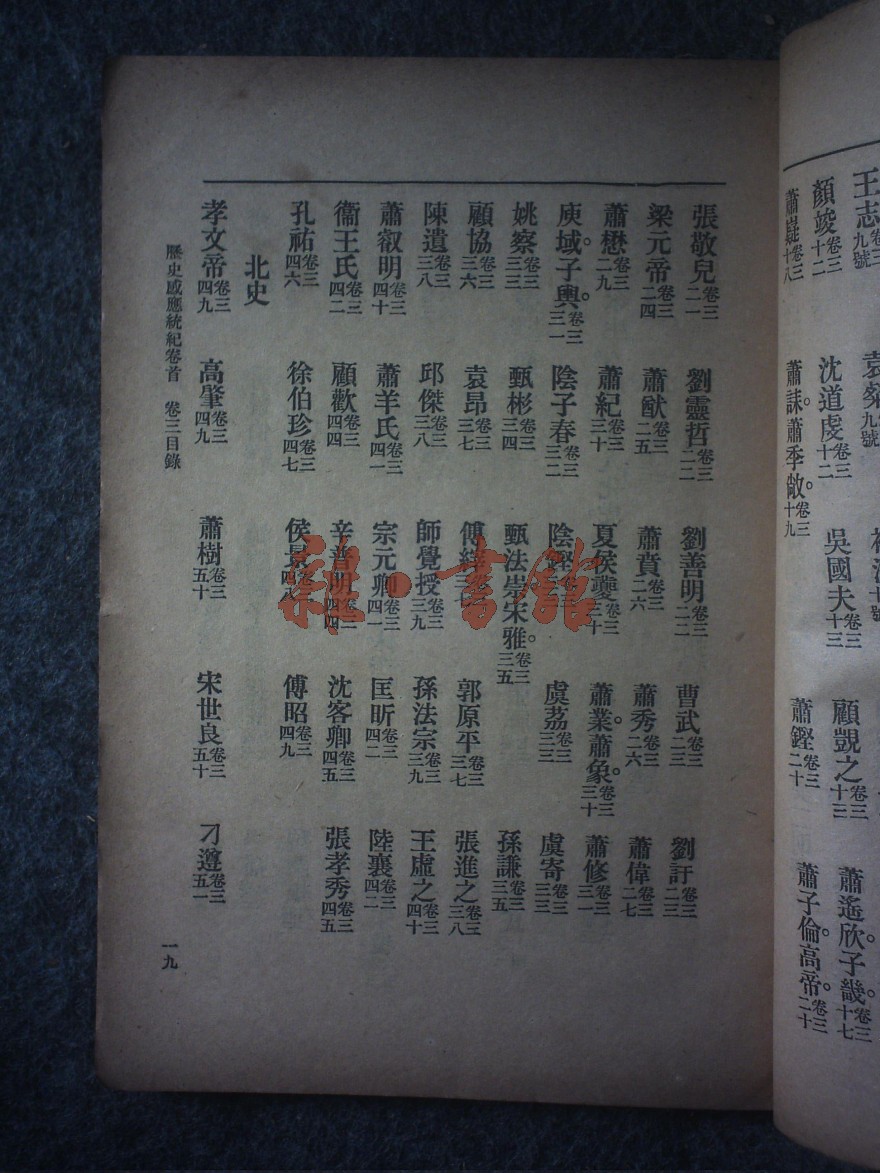 王志卷三九號 袁粲卷三九號
顏竣卷三十二 沈道虔卷三十二 吳國夫卷三十三 顧覬之卷三十三 蕭遙欣。子畿。卷三十七
蕭嶷卷三十八 蕭誄。蕭季敞。卷三十九 蕭鏗卷三二十 蕭子倫。高帝。卷三二十
張敬兒卷三二一 劉靈哲卷三二二 劉善明卷三二二 曹武卷三二三 劉訏卷三二三
梁元帝卷三二四 蕭猷卷三二五 蕭賁卷三二六 蕭秀卷三二六 蕭偉卷三二七
蕭懋卷三二九 蕭紀卷三三十 夏侯夔卷三三十 蕭業。蕭象。卷三三十 蕭修卷三三一
庾域。子輿。卷三三一 陰子春卷三三二 陰鏗卷三 虞荔卷三三三 虞寄卷三三三
姚察卷三三三 甄彬卷三三四 甄法崇。宋雅。卷三三五 孫謙卷三三五
顧協卷三三六 袁昂卷三三七 傅縡 郭原平卷三三七 張進之卷三三八
陳遺卷三三八 邱傑卷三三八 師覺授卷三三九 孫法宗卷三三九 王虛之卷三四十
蕭叡明卷三四十 蕭羊氏卷三四一 宗元卿卷三四一 匡昕卷三四二 陸襄卷三四二
衞王氏卷三四二 顧歡卷三四四 辛普明卷三四四 沈客卿卷三四五 張孝秀卷三四五
孔祐卷三四六 徐伯珍卷三四七 侯景卷三四八 傅昭卷三四九
北史
孝文帝卷三四九 高肇卷三四九 蕭樹卷三五十 宋世良卷三五十 刁遵卷三五一
歷史感應統紀卷首 卷三目錄 一九
雜·書館